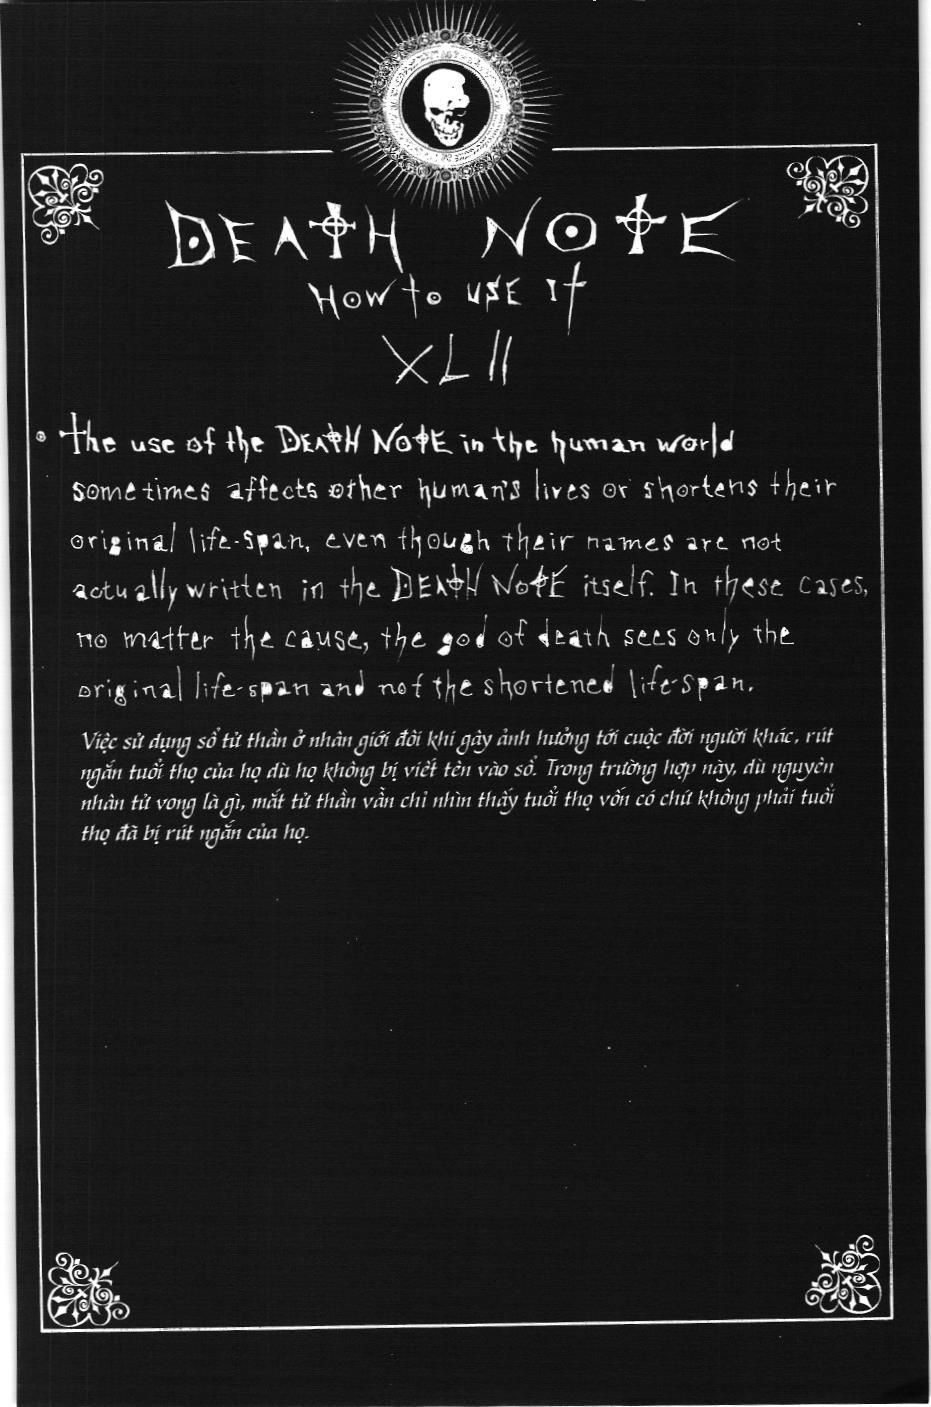 DEATH NOTE
HOW to USE It
XLII
• the use of the DEATH NOTE in the human world
sometimes affects other human's lives or shortens their
original life-span, even though their names are not
actually written in the DEATH NOTE itself. In these cases,
no matter the cause, the god of death sees only the
original life-span and not the shortened life-span.
Việc sử dụng sổ tử thần ở nhân giới đôi khi gây ảnh hưởng tới cuộc đời người khác, rút
ngắn tuổi thọ của họ dù họ không bị viết tên vào sổ. Trong trường hợp này, dù nguyên
nhân tử vong là gì, mắt tử thần vẫn chỉ nhìn thấy tuổi thọ vốn có chứ không phải tuổi
thọ đã bị rút ngắn của họ.